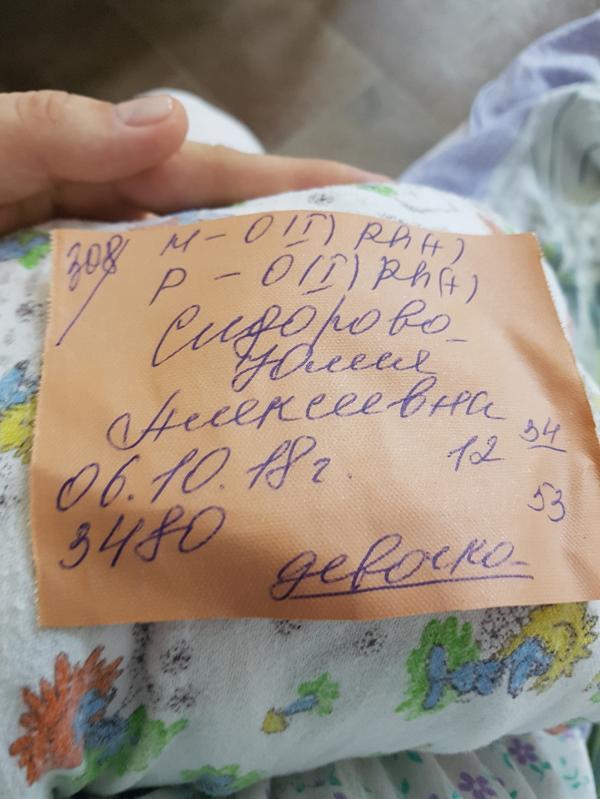 308/ М – O(I) Rh(+)
Р – O(I) Rh(+)
Сидорова
Юлия
Алексеевна
06.10.18г. 12 34
3480 53
девочка